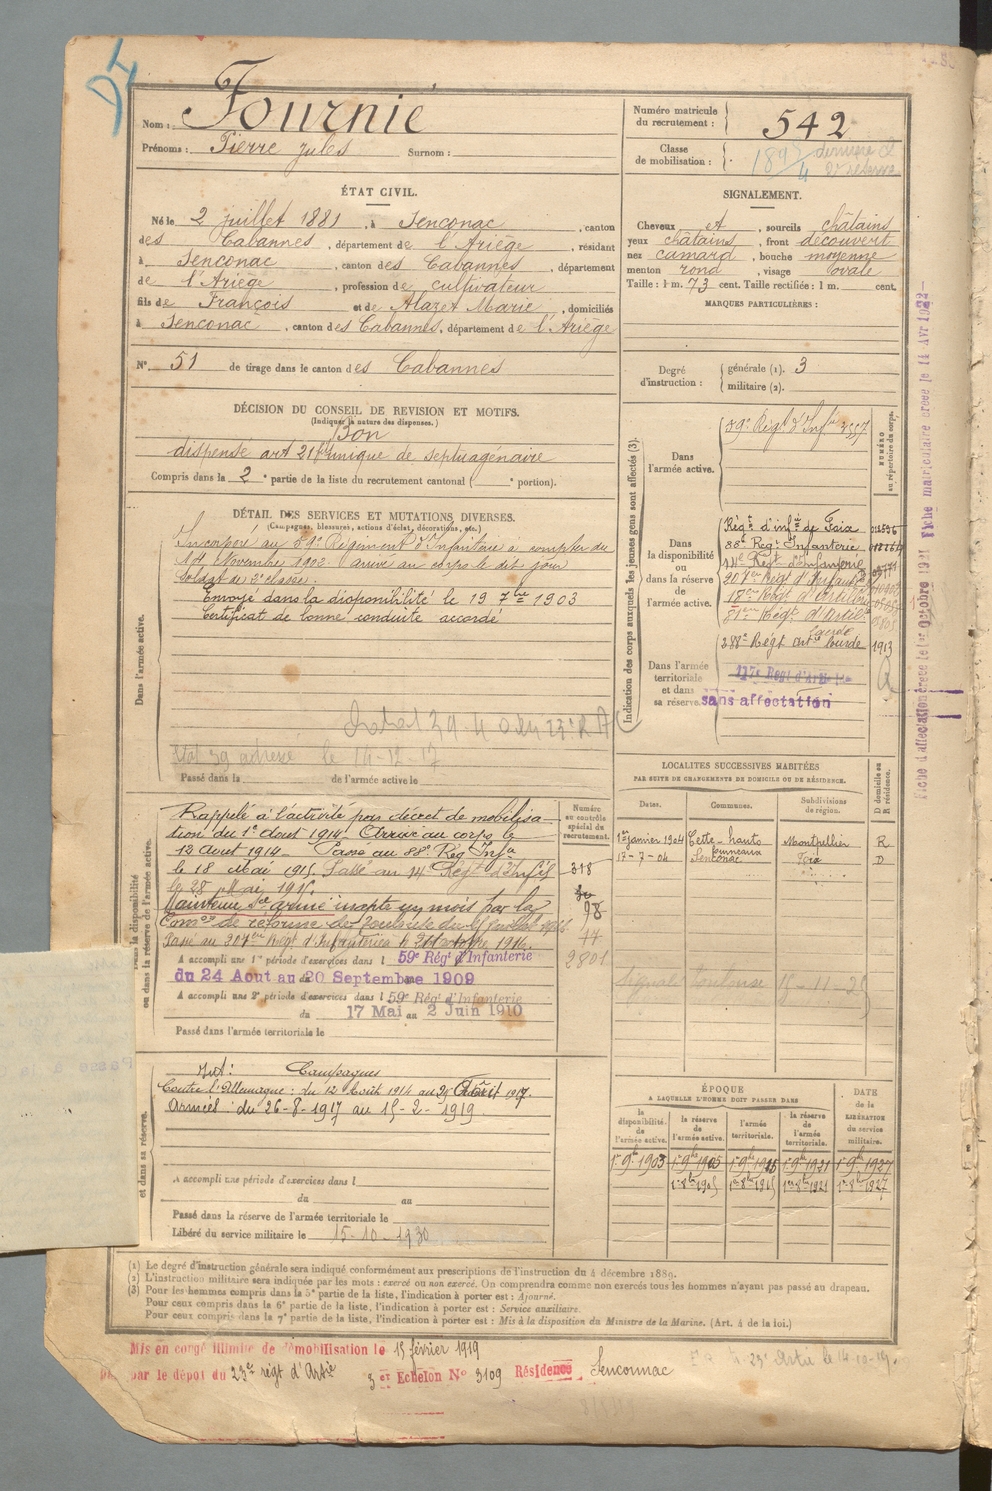 Nom : Fournié
Prénoms : Pierre Jules Surnom :
Numéro matricule du recrutement : 542
Classe de mobilisation :
ÉTAT CIVIL.
Né le 2 juillet 1881, à Senconac, canton
des Cabannes, département de l'Ariège, résidant
à Senconac, canton des Cabannes, département
de l'Ariège, profession de cultivateur
fils de François et de Alazet Marie, domiciliés
à Senconac, canton des Cabannes, département de l'Ariège
N° 51 de tirage dans le canton des Cabannes
SIGNALEMENT.
Cheveux et, sourcils châtains
yeux châtains, front découvert
nez camard, bouche moyenne
menton rond, visage ovale
Taille : 1 m. 73 cent. Taille rectifiée : 1 m. cent.
MARQUES PARTICULIÈRES :
Degré d'instruction : générale (1). 3
militaire (2).
DÉCISION DU CONSEIL DE REVISION ET MOTIFS.
(Indiquer la nature des dispenses.)
Bon
dispensé art 21 unique de septuagénaire
Compris dans la 2e partie de la liste du recrutement cantonal ( e portion).
DÉTAIL DES SERVICES ET MUTATIONS DIVERSES.
(Campagnes, blessures, actions d'éclat, décorations, etc.)
Dans l'armée active.
Incorporé au 59e Régiment d'Infanterie à compter du
Novembre 1902 arrivé au corps le dit jour
Soldat de 2e classe.
Envoyé dans la disponibilité le 19 7bre 1903
Certificat de bonne conduite accordé
adresse le 14-12-17
Passé dans la de l'armée active le
Indication des corps auxquels les jeunes gens sont affectés (3).
NUMÉRO au répertoire du corps.
Dans l'armée active.
59e Régt d'Infie
Dans la disponibilité ou dans la réserve de l'armée active.
Régt d'infie de Foix
88e Régt Infanterie
14e Régt d'Infanterie
81em Régt d'Artil.
288e Régt Artie lourde 1913
Dans l'armée territoriale et dans sa réserve.
117e Regt d'Artillerie
sans affectation
Fiche d'affectation créée le 1er Octobre 1921 Fiche matriculaire créée le 14 Avr 1922
LOCALITÉS SUCCESSIVES HABITÉES
PAR SUITE DE CHANGEMENTS DE DOMICILE OU DE RÉSIDENCE.
Dates. Communes. Subdivisions de région. D domicile ou R résidence.
1er janvier 1904 Cette Montpellier R
17-7-04 Senconac Foix D
Toulouse 15-11-25
dans la disponibilité ou dans la réserve de l'armée active.
Numéro au contrôle spécial du recrutement.
Rappelé à l'activité par décret de mobilisa-
tion du 1er Aout 1914 Arrivé au corps le
12 Aout 1914 Passé au 88e Rég Infie
le 18 Mai 1915. Passé au 14e Régt d'Infie 318
le 28 Mai 1915.
Maintenu Sce armé inapte mois par la 98
Comon de réforme de 1916
Passé au 207em Régt d'Infanterie le 1916.
2801
A accompli une 1re période d'exercices dans l 59e Rég! d'Infanterie
du 24 Aout au 20 Septembre 1909
A accompli une 2e période d'exercices dans l 59e Rég! d'Infanterie
du 17 Mai au 2 Juin 1910
Passé dans l'armée territoriale le
et dans sa réserve.
Int: Campagnes
Contre l'Allemagne : du 12 Août 1914 au 25 Août 1917.
Armées : du 26-8-1917 au 15-2-1919
A accompli une période d'exercices dans l
du au
Passé dans la réserve de l'armée territoriale le
Libéré du service militaire le 15-10-1930
ÉPOQUE
A LAQUELLE L'HOMME DOIT PASSER DANS
la disponibilité de l'armée active. la réserve de l'armée active. l'armée territoriale. la réserve de l'armée territoriale. DATE de la LIBÉRATION du service militaire.
1er 9bre 1903 1er 9bre 1905 1er 9bre 1915 1er 9bre 1921 1er 9bre 1927
1er 8bre 1905 1er 8bre 1915 1er 8bre 1921 1er 8bre 1927
(1) Le degré d'instruction générale sera indiqué conformément aux prescriptions de l'instruction du 4 décembre 1889.
(2) L'instruction militaire sera indiquée par les mots : exercé ou non exercé. On comprendra comme non exercés tous les hommes n'ayant pas passé au drapeau.
(3) Pour les hommes compris dans la 5e partie de la liste, l'indication à porter est : Ajourné.
Pour ceux compris dans la 6e partie de la liste, l'indication à porter est : Service auxiliaire.
Pour ceux compris dans la 7e partie de la liste, l'indication à porter est : Mis à la disposition du Ministre de la Marine. (Art. 4 de la loi.)
Mis en congé illimité de démobilisation le 15 février 1919
par le dépôt du 23e régt d'Artie 3 et Echelon N° 3109 Résidence Senconnac